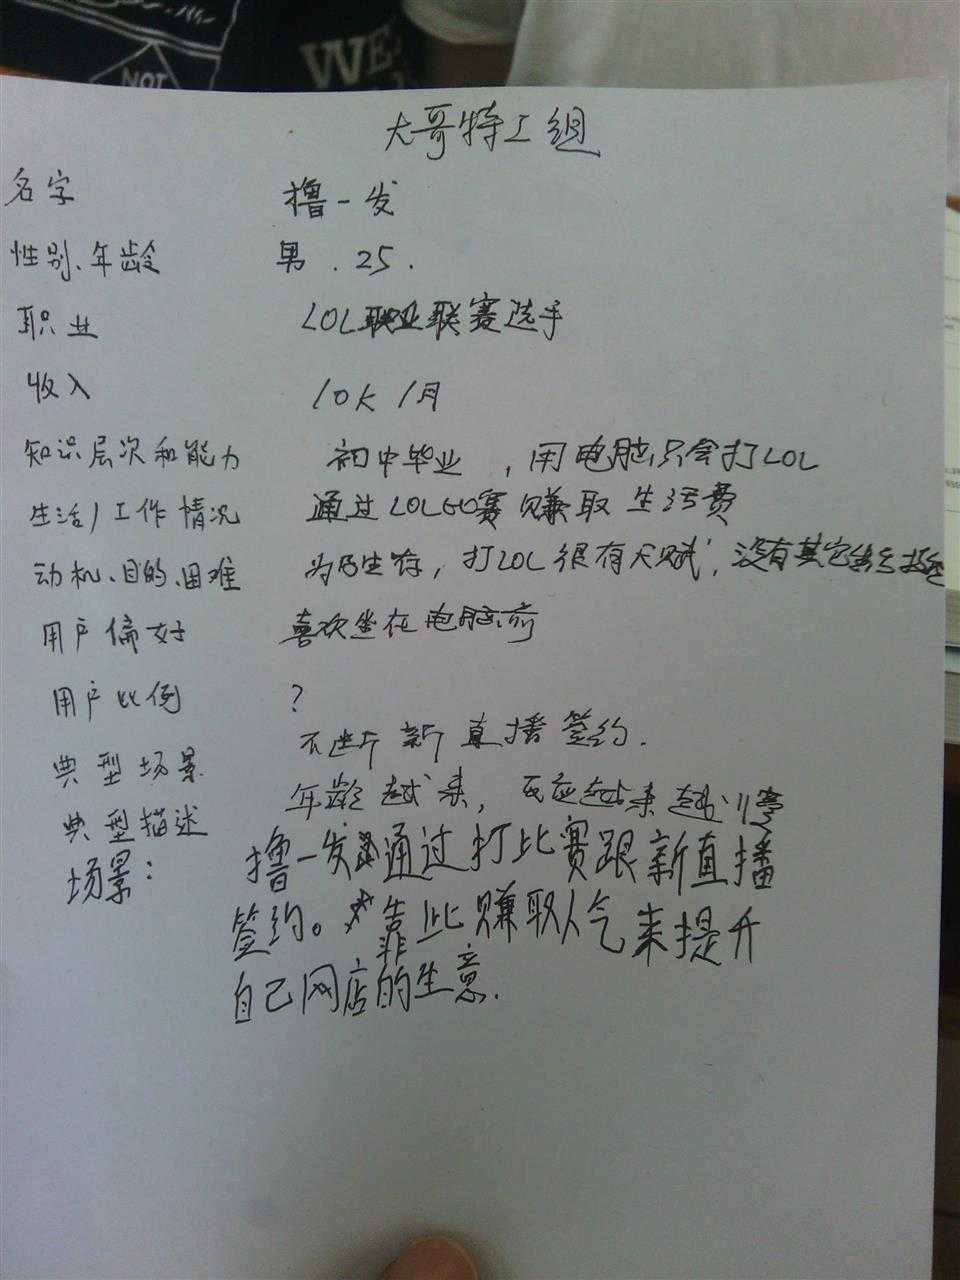 NOT
WE
大哥特工组
名字 撸一发
性别、年龄 男.25.
职业 LOL职业联赛选手
收入 10K/月
知识层次和能力 初中毕业,用电脑只会打LOL
生活/工作情况 通过LOL 赛赚取生活费
动机、目的、困难 为了生存,打LOL很有天赋,没有其它
用户偏好 喜欢坐在电脑前
用户比例 ?
典型场景 不断新直播签约.
典型描述 年龄越来,反应越来越慢
场景: 撸一发通过打比赛跟新直播
签约。靠此赚取人气来提升
自己网店的生意.